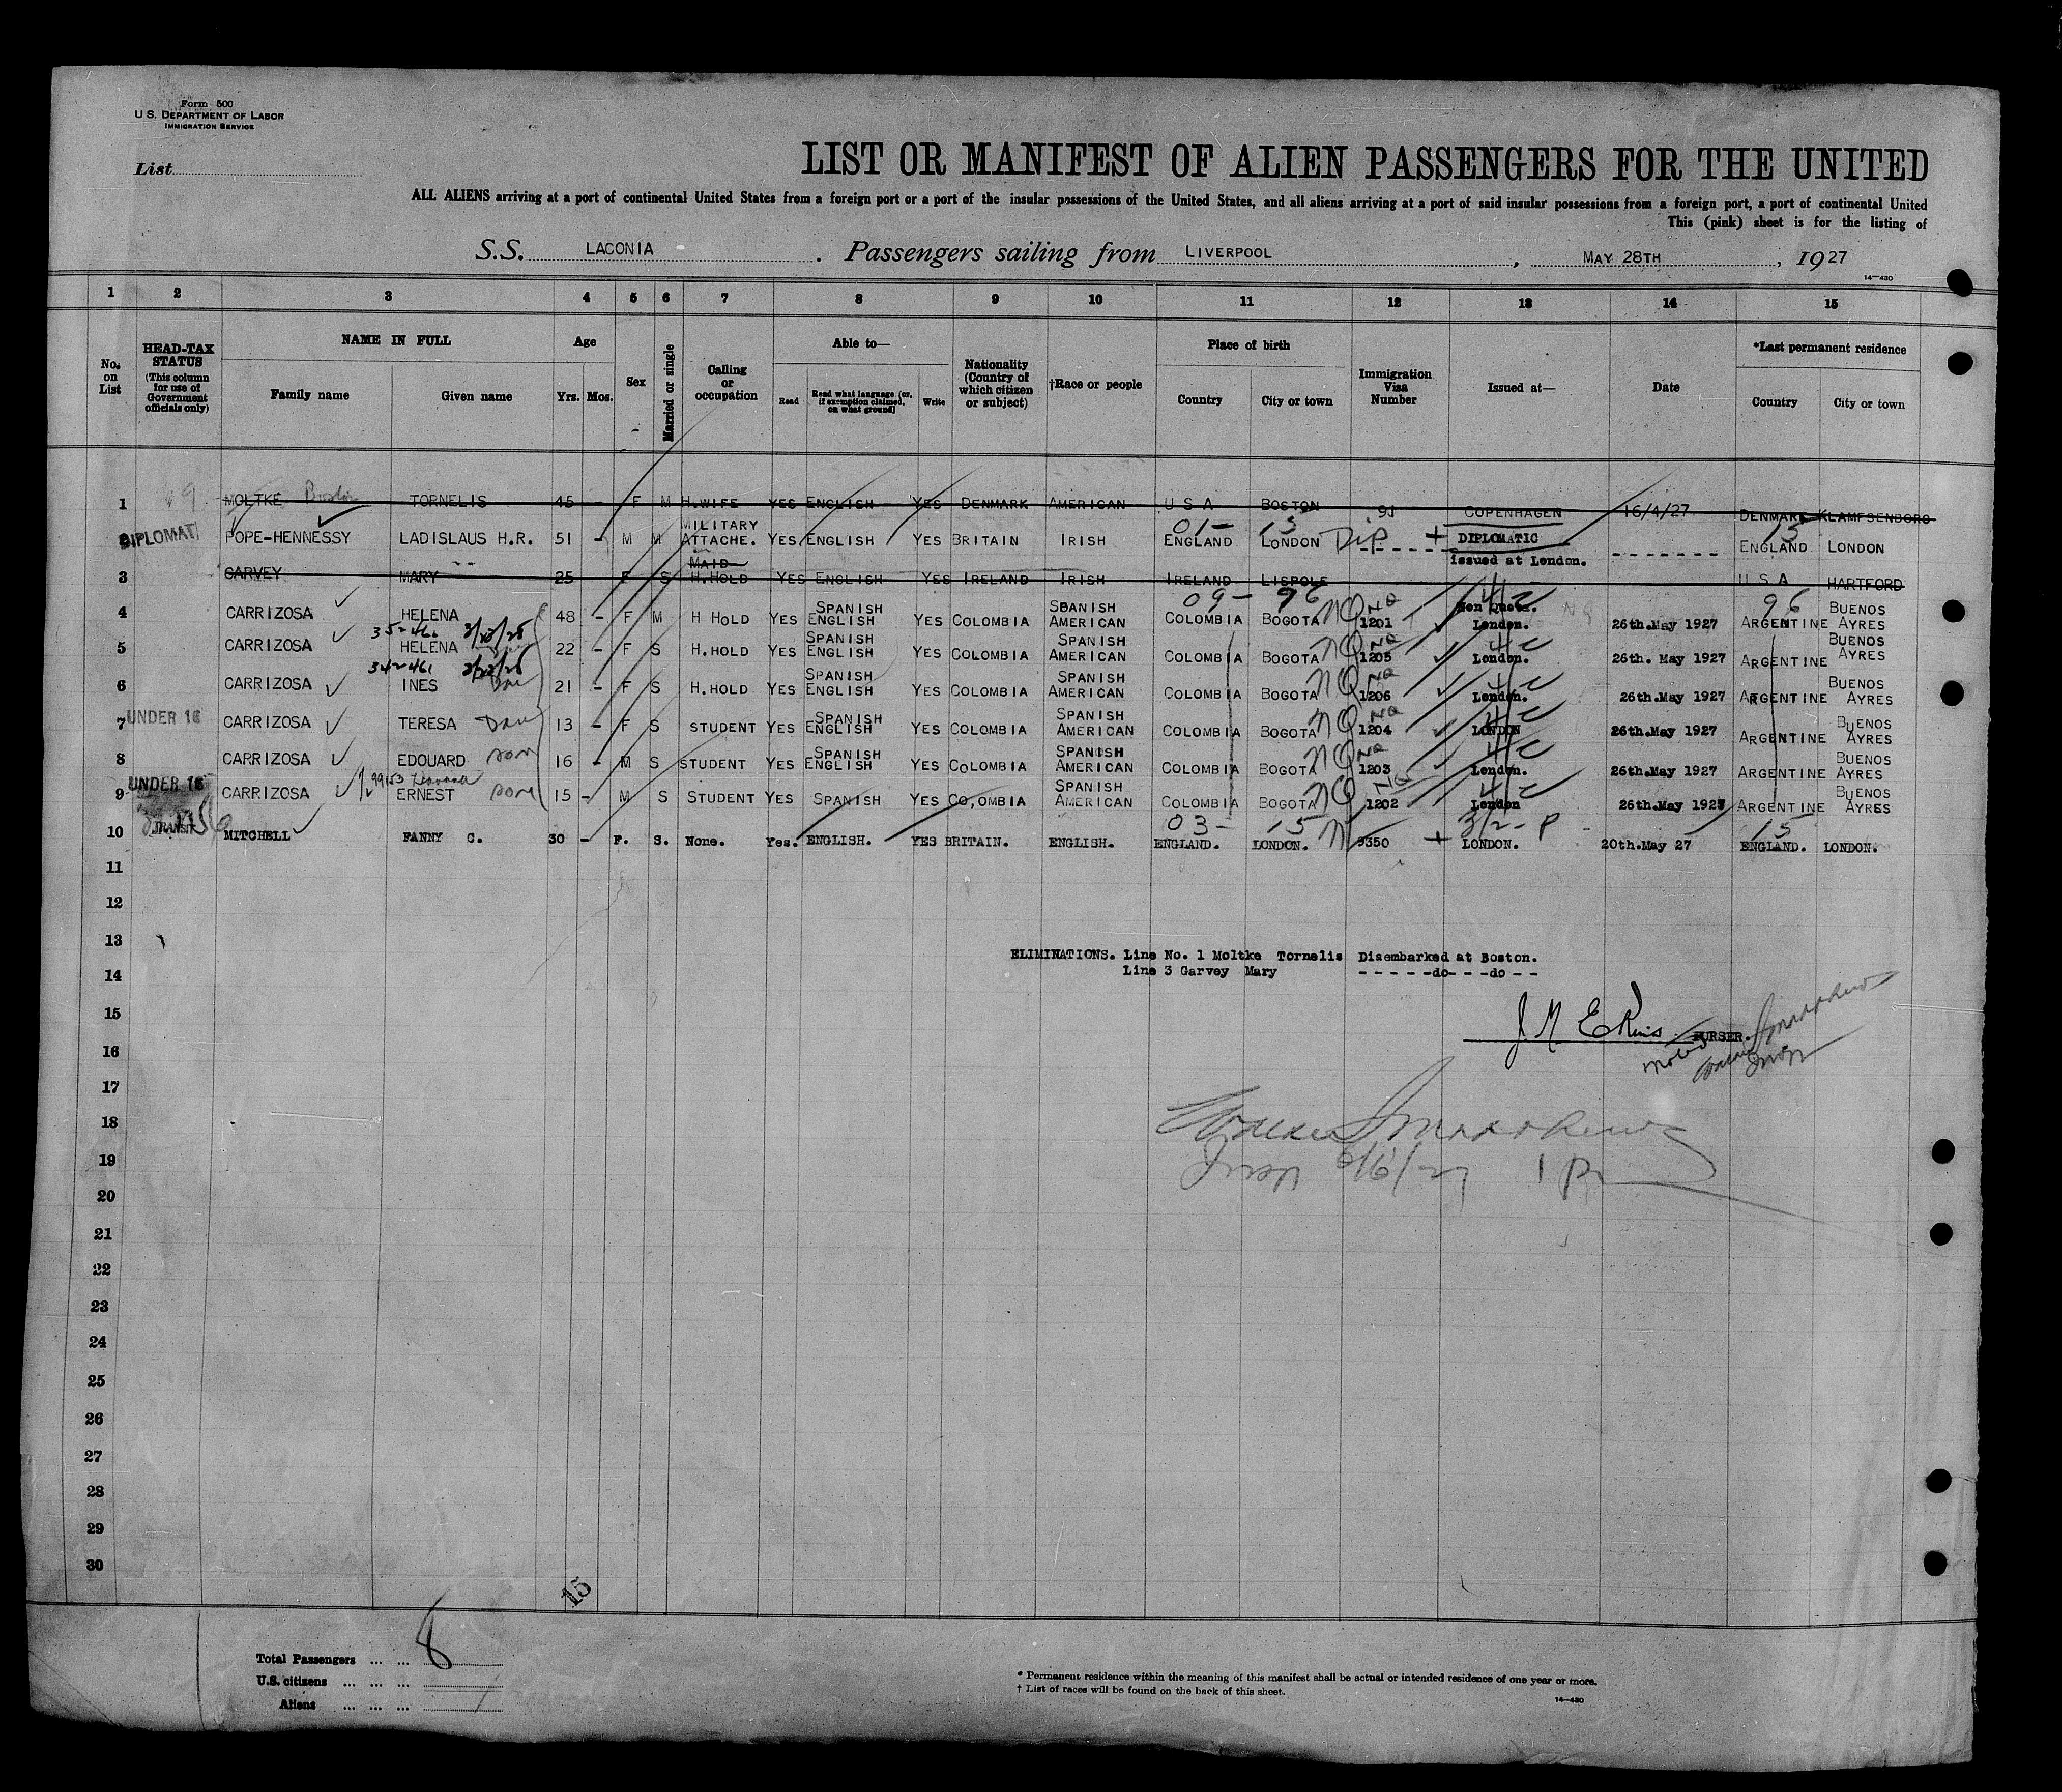 Form 500
U.S. DEPARTMENT OF LABOR
IMMIGRATION SERVICE
List
LIST OR MANIFEST OF ALIEN PASSENGERS FOR THE UNITED
ALL ALIENS arriving at a port of continental United States from a foreign port or a port of the insular possessions of the United States, and all aliens arriving at a port of said insular possessions from a foreign port, a port of continental United
This (pink) sheet is for the listing of
S.S. LACONIA. Passengers sailing from LIVERPOOL, MAY 28TH, 1927
14—430
1 2 3 4 5 6 7 8 9 10 11 12 13 14 15
No. on List
HEAD-TAX STATUS (This column for use of Government officials only)
NAME IN FULL
Family name
Given name
Age
Yrs. Mos.
Sex
Married or single
Calling or occupation
Able to—
Read
Read what language (or, if exemption claimed, on what ground)
Write
Nationality (Country of which citizen or subject)
†Race or people
Place of birth
Country
City or town
Immigration Visa Number
Issued at—
Date
*Last permanent residence
Country
City or town
1 MOLTKE Boston TORNELIS 45 - F M H.WIFE YES ENGLISH YES DENMARK AMERICAN U S A BOSTON 91 COPENHAGEN 16/4/27 DENMARK KLAMPSENBORG
01- 15 15
2 DIPLOMAT POPE-HENNESSY LADISLAUS H.R. 51 - M M MILITARY ATTACHE. YES ENGLISH YES BRITAIN IRISH ENGLAND LONDON Dip + DIPLOMATIC issued at London. ENGLAND LONDON
3 GARVEY MARY 25 F S MAID H.HOLD YES ENGLISH YES IRELAND IRISH IRELAND LISPOLE U S A HARTFORD
09- 96 96
4 CARRIZOSA HELENA 48 - F M H HOLD YES SPANISH ENGLISH YES COLOMBIA SPANISH AMERICAN COLOMBIA BOGOTA NQ 1201 Non Quota. London. 26th.May 1927 ARGENTINE BUENOS AYRES
5 CARRIZOSA HELENA 22 - F S H.HOLD YES SPANISH ENGLISH YES COLOMBIA SPANISH AMERICAN COLOMBIA BOGOTA NQ 1205 London. 26th. May 1927 ARGENTINE BUENOS AYRES
6 CARRIZOSA INES 21 - F S H.HOLD YES SPANISH ENGLISH YES COLOMBIA SPANISH AMERICAN COLOMBIA BOGOTA NQ 1206 London. 26th.May 1927 ARGENTINE BUENOS AYRES
7 UNDER 16 CARRIZOSA TERESA 13 - F S STUDENT YES SPANISH ENGLISH YES COLOMBIA SPANISH AMERICAN COLOMBIA BOGOTA NQ 1204 LONDON 26th.May 1927 ARGENTINE BUENOS AYRES
8 CARRIZOSA EDOUARD son 16 - M S STUDENT YES SPANISH ENGLISH YES COLOMBIA SPANISH AMERICAN COLOMBIA BOGOTA NQ 1203 London. 26th.May 1927 ARGENTINE BUENOS AYRES
9 UNDER 16 CARRIZOSA ERNEST son 15 - M S STUDENT YES SPANISH YES CO,OMBIA SPANISH AMERICAN COLOMBIA BOGOTA NQ 1202 London 26th.May 1927 ARGENTINE BUENOS AYRES
03- 15 3/2-P 15
10 TRANSIT MITCHELL FANNY C. 30 - F. S. None. Yes. ENGLISH. YES BRITAIN. ENGLISH. ENGLAND. LONDON. 9350 + LONDON. 20th.May 27 ENGLAND. LONDON.
11
12
13
ELIMINATIONS. Line No. 1 Moltke Tornelis Disembarked at Boston.
Line 3 Garvey Mary - - - - -do- - - -do - -
14
15
PURSER.
16
17
18
19
6/6/27 1 P
20
21
22
23
24
25
26
27
28
29
30
15
Total Passengers ... ... 8
U.S. citizens ... ... ...
Aliens ... ... ...
* Permanent residence within the meaning of this manifest shall be actual or intended residence of one year or more.
† List of races will be found on the back of this sheet.
14—430